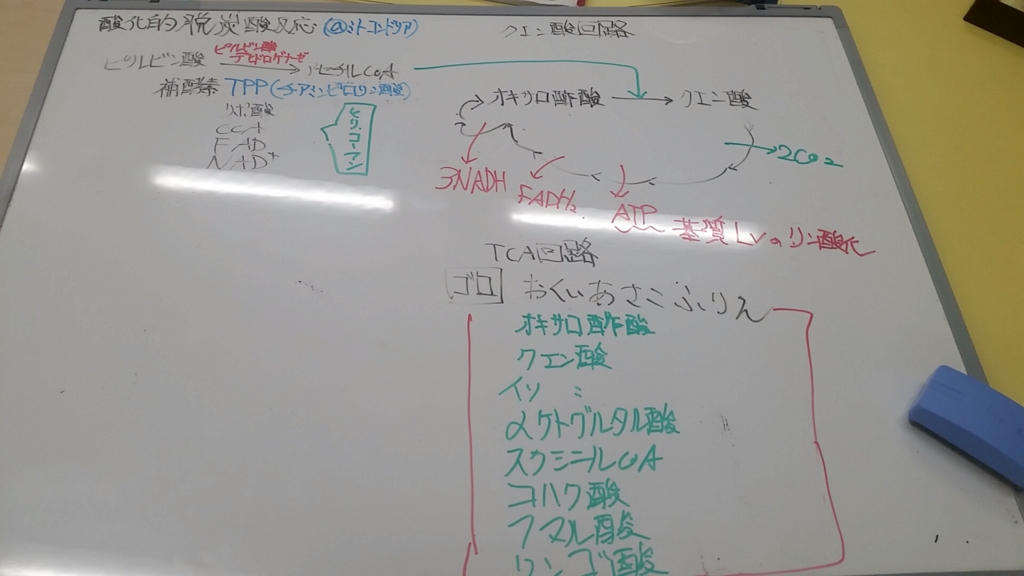 酸化的脱炭酸反応 (@ミトコンドリア)
ピルビン酸 → アセチルCoA
ピルビン酸
デヒドロゲナーゼ
補酵素 TPP(チアミンピロリン酸)
リポ酸
CoA
FAD
NAD+
とりコーアン
クエン酸回路
オキサロ酢酸 → クエン酸
2CO2
3NADH
FADH2
ATP
基質Lvのリン酸化
TCA回路
ゴロ おくいあさこふりん
オキサロ酢酸
クエン酸
イソ 〃
αケトグルタル酸
スクシニルCoA
コハク酸
フマル酸
リンゴ酸